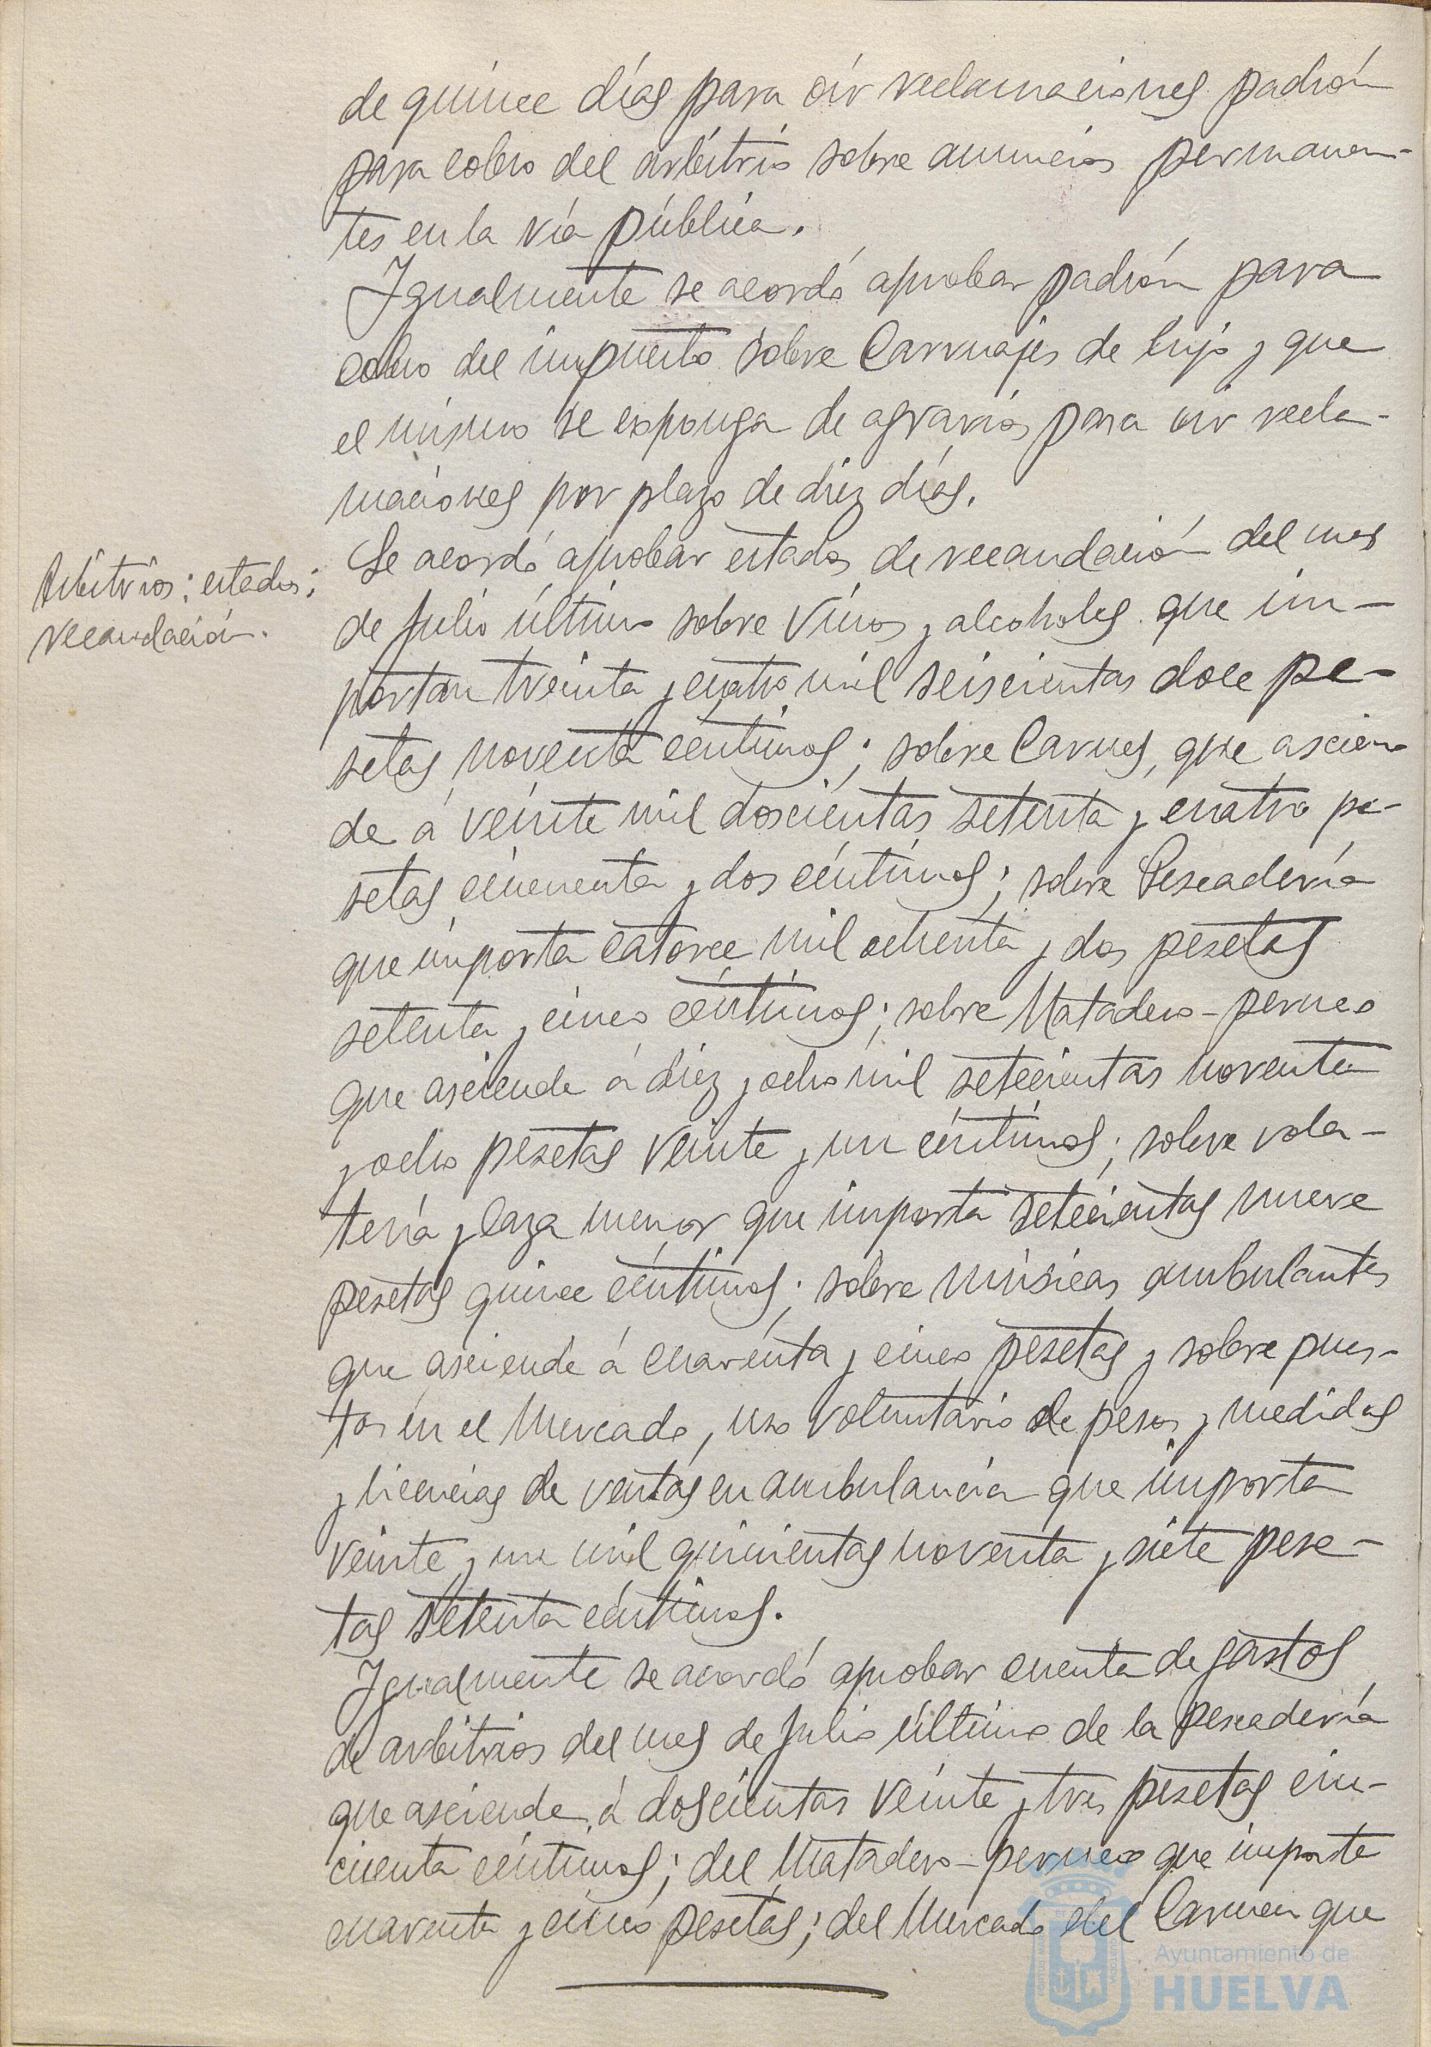 de quince días para oir reclamaciones padrón
para cobro del arbitrio sobre anuncios permanen-
tes en la vía pública.
Igualmente se acordó aprobar padrón para
cobro del impuesto sobre Carruajes de lujo y que
el mismo se exponga de agravios para oir recla-
maciones por plazo de diez días.
Arbitrios: estados:
recaudación.
Se acordó aprobar estados de recaudación del mes
de Julio último sobre Vinos y alcoholes que im-
portan treinta y cuatro mil seiscientas doce pe-
setas noventa céntimos; sobre Carnes, que ascien-
de á veinte mil doscientas setenta y cuatro pe-
setas cincuenta y dos céntimos; sobre Pescadería
que importa catorce mil ochenta y dos pesetas
setenta y cinco céntimos; sobre Matadero-perneo
que asciende á diez y ocho mil setecientas noventa
y ocho pesetas veinte y un céntimos; sobre vola-
tería y caza menor que importa setecientas nueve
pesetas quince céntimos; sobre músicas ambulantes
que asciende á cuarenta y cinco pesetas y sobre pues-
tos en el Mercado, uso voluntario de pesas y medidas
y licencias de ventas en ambulancia que importa
veinte y un mil quinientas noventa y siete pese-
tas setenta céntimos.
Igualmente se acordó aprobar cuenta de gastos
de arbitrios del mes de Julio último de la pescadería
que asciende á doscientas veinte y tres pesetas cin-
cuenta céntimos; del Matadero-perneo que importa
cuarenta y cinco pesetas; del Mercado del Carmen que
Ayuntamiento de
HUELVA